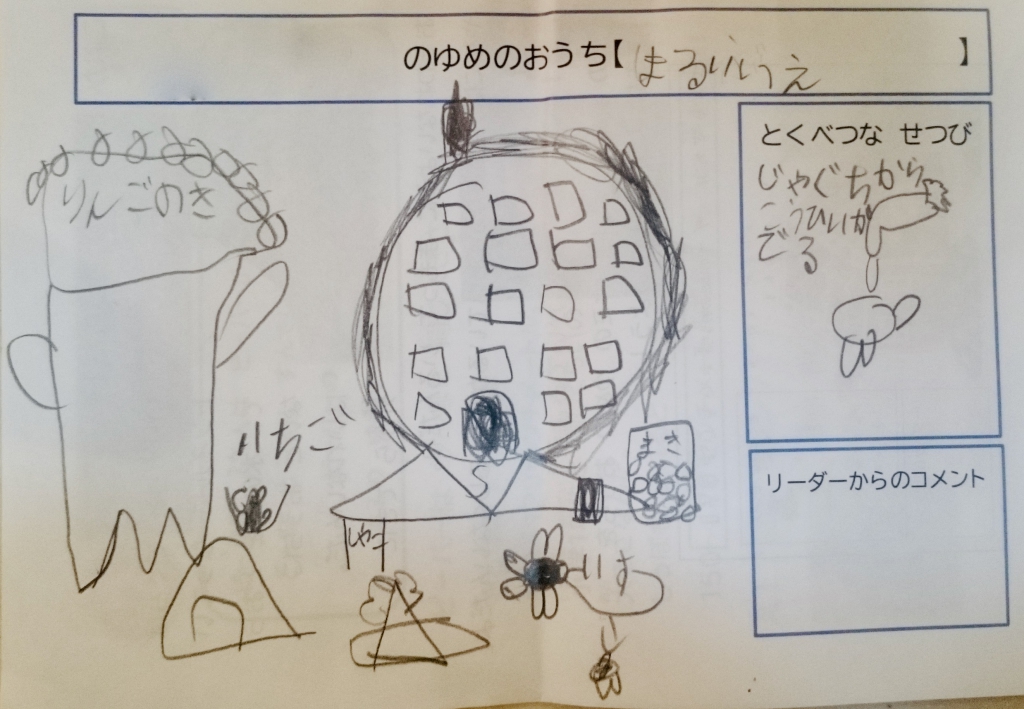 のゆめのおうち【まるいいえ】
とくべつな せつび
じゃぐちから
こうひいが
でる
りんごのき
いちご
まき
いす
リーダーからのコメント